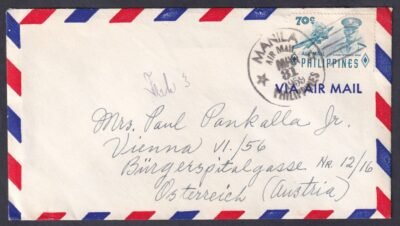 70c
PHILIPPINES
MANILA
AIR MAIL
MAR
31
PHILIPPINES
VIA AIR MAIL
Mrs. Paul Pankalla Jr.
Vienna VI./56
Bürgerspitalgasse Nr. 12/16
Österreich (Austria)